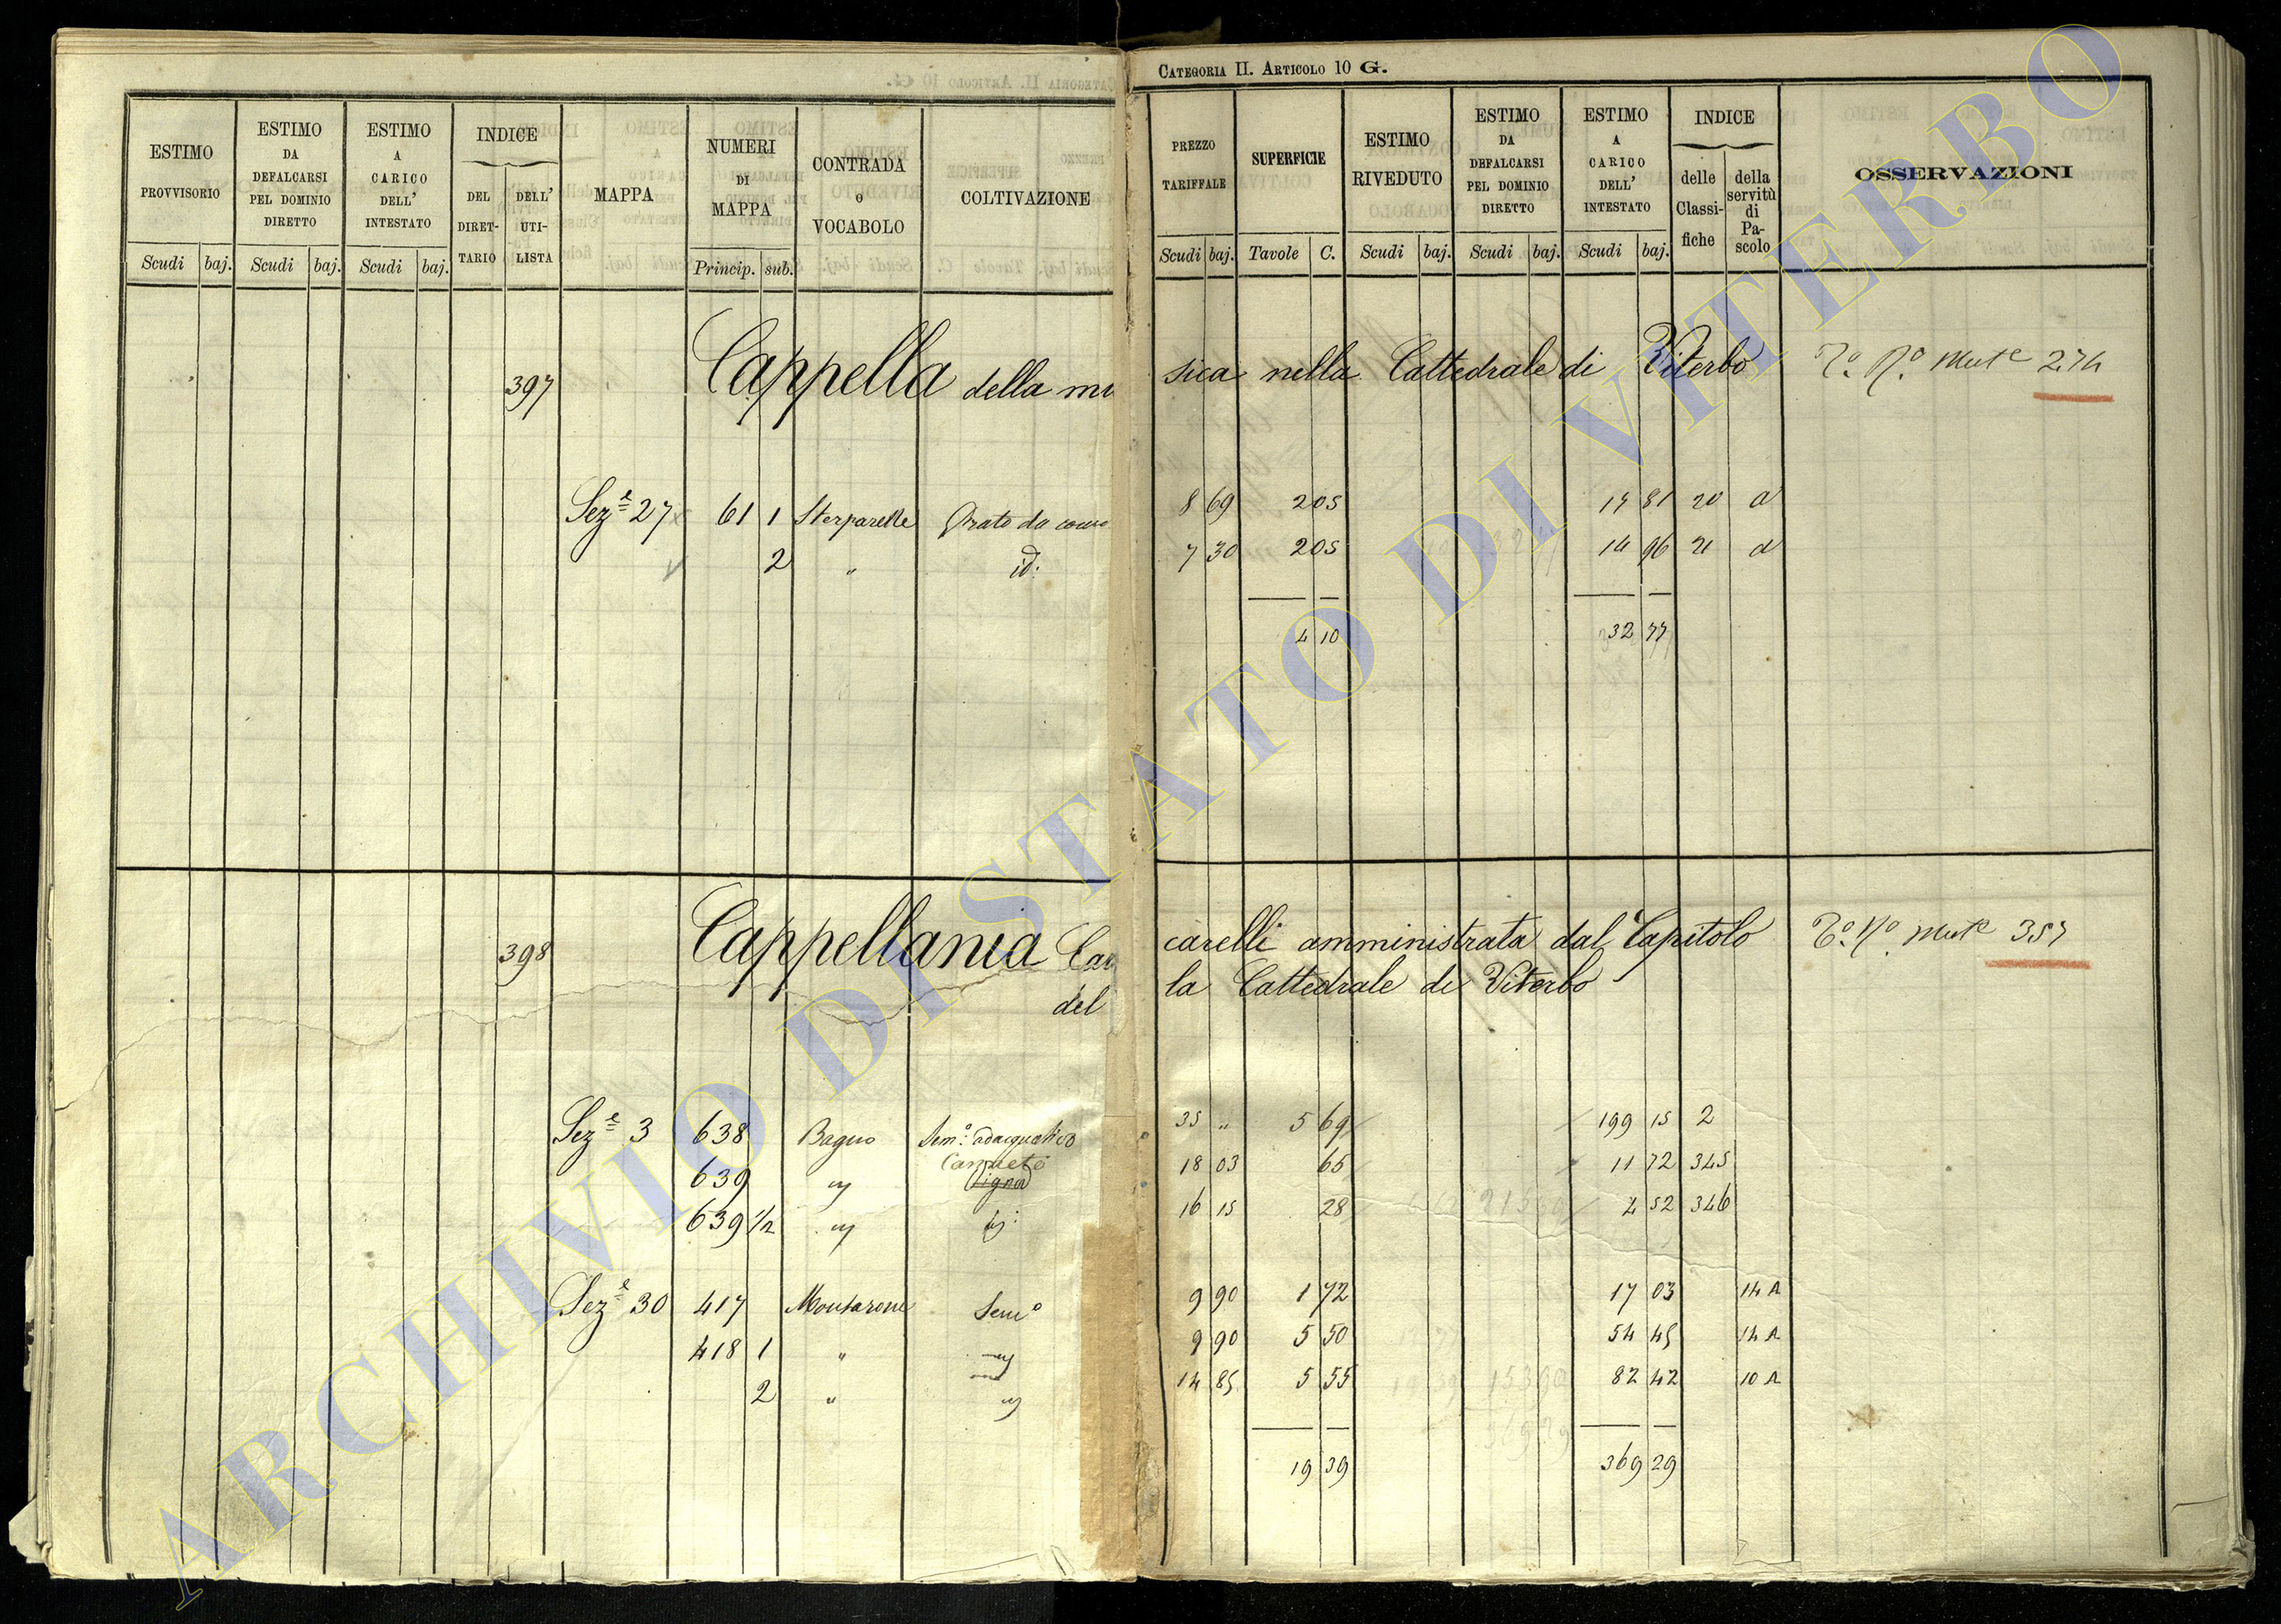 CATEGORIA II. ARTICOLO 10 G.
ESTIMO PROVVISORIO
Scudi baj.
ESTIMO DA DEFALCARSI PEL DOMINIO DIRETTO
Scudi baj.
ESTIMO A CARICO DELL' INTESTATO
Scudi baj.
INDICE
DEL DIRET-TARIO
DELL' UTI-LISTA
MAPPA
NUMERI DI MAPPA
Princip. sub.
CONTRADA o VOCABOLO
COLTIVAZIONE
PREZZO TARIFFALE
Scudi baj.
SUPERFICIE
Tavole C.
ESTIMO RIVEDUTO
Scudi baj.
ESTIMO DA DEFALCARSI PEL DOMINIO DIRETTO
Scudi baj.
ESTIMO A CARICO DELL' INTESTATO
Scudi baj.
INDICE
delle Classi-fiche
della servitù di Pa-scolo
OSSERVAZIONI
397 Cappella della mu sica nella Cattedrale di Viterbo
Sez.e 27 61 1 Sterparelle Prato da 8 69 2 05 81 20 a
2 " id: 7 30 2 05 14 96 21 a
4 10 32 77
398 Cappellania Car carelli amministrata dal Capitolo 357
del la Cattedrale di Viterbo
Sez.e 3 638 Bagno Sem.o adacquativo 35 " 5 69 199 15 2
639 " Canneto 18 03 65 11 72 345
639 1/2 " 16 15 28 4 52 346
Sez.e 30 417 Montarone Sem.o 9 90 1 72 17 03 14 A
418 1 " " 9 90 5 50 54 45 14 A
2 " " 14 85 5 55 82 42 10 A
19 39 369 29
ARCHIVIO DI STATO DI VITERBO